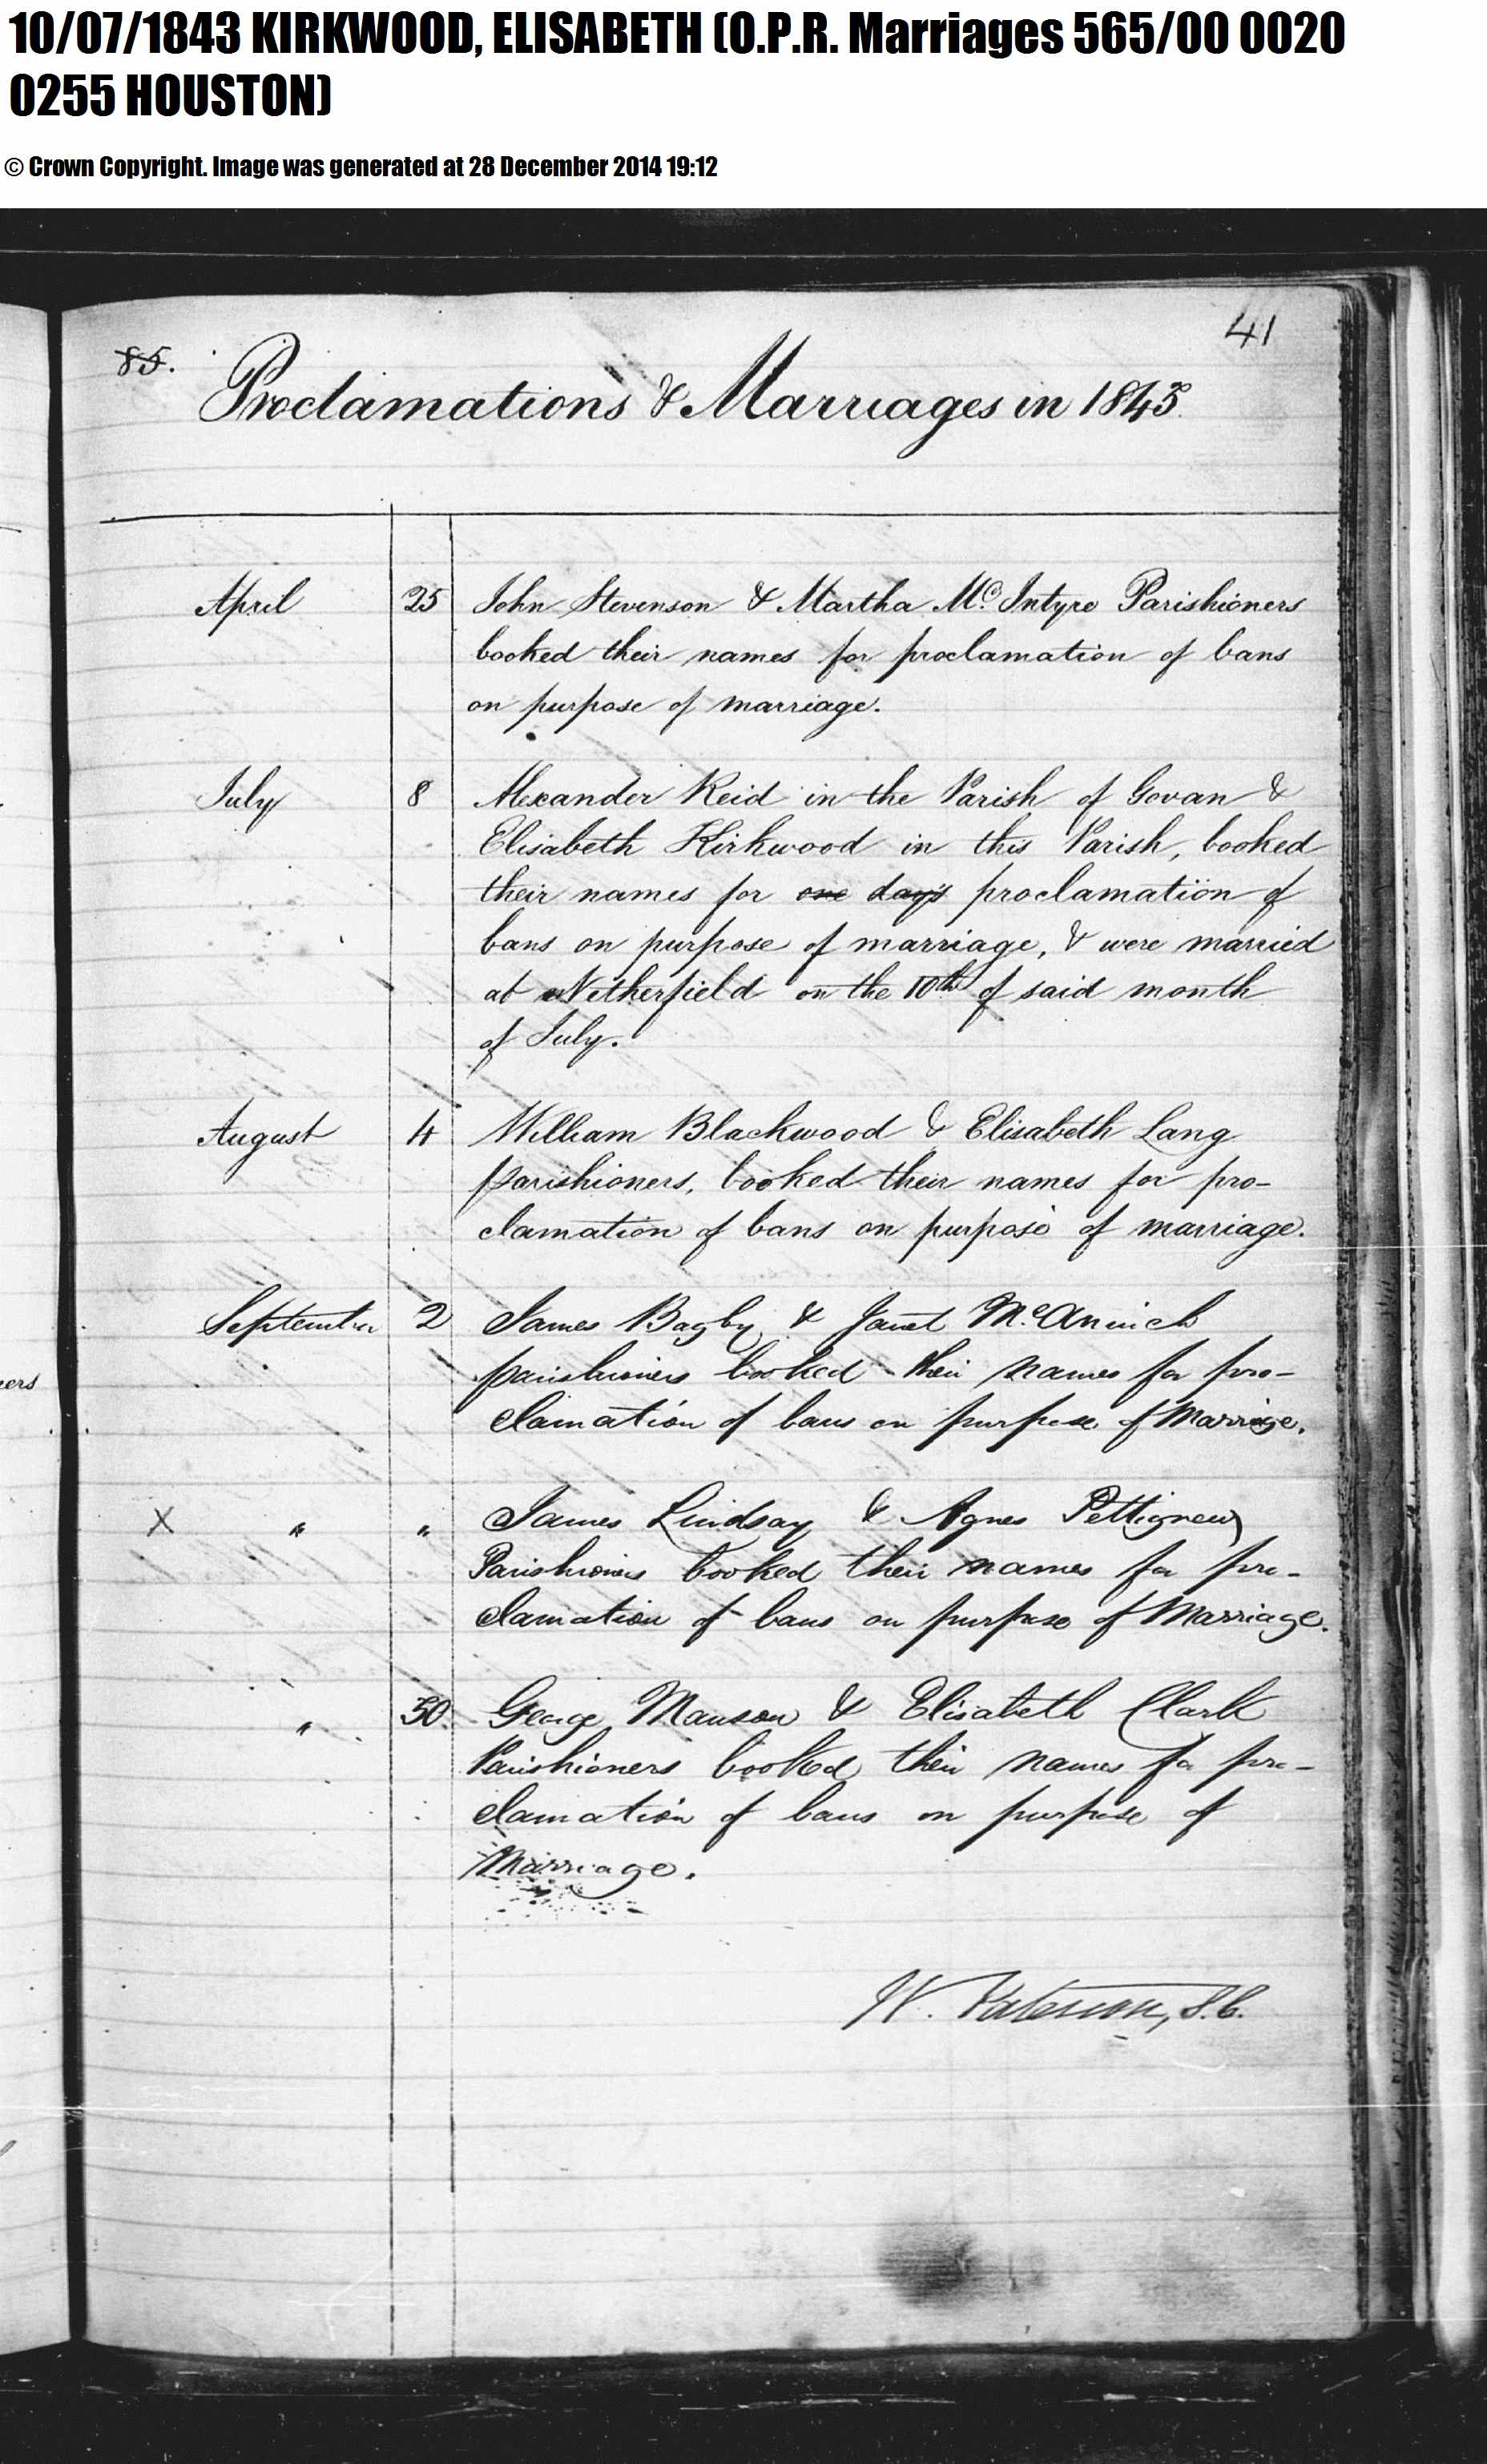 10/07/1843 KIRKWOOD, ELISABETH (O.P.R. Marriages 565/00 0020
0255 HOUSTON)
© Crown Copyright. Image was generated at 28 December 2014 19:12
41
85.
Proclamations & Marriages in 1843.
April 25 John Stevenson & Martha McIntyre Parishioners
booked their names for proclamation of bans
on purpose of marriage.
July 8 Alexander Reid in the Parish of Govan &
Elisabeth Kirkwood in this Parish, booked
their names for one day's proclamation of
bans on purpose of marriage, & were married
at Netherfield on the 10th of said month
of July.
August 4 William Blackwood & Elisabeth Lang
parishioners, booked their names for pro-
clamation of bans on purpose of marriage.
September 2 James Bagby & Janet McAninch
parishioners booked their names for pro-
ners
clamation of bans on purpose of Marriage.
X " " James Lindsay & Agnes Pettigrew
Parishioners booked their names for pro-
clamation of bans on purpose of Marriage.
" 30 George Manson & Elisabeth Clark
Parishioners booked their names for pro-
clamation of bans on purpose of
Marriage.
W. Paterson, S.C.